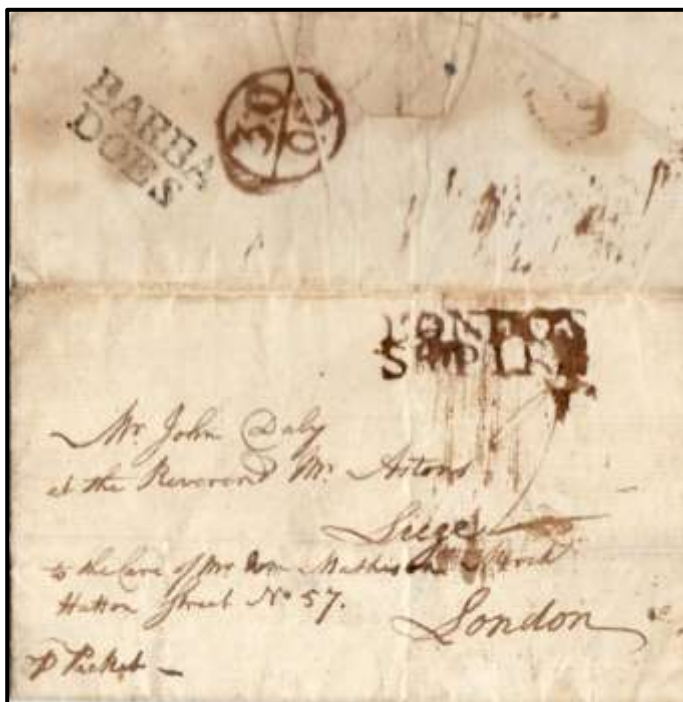 BARBA
DOES
30
LONDON
SHIP LRE
Mr. John Daly
at the Reverend Mr. Astons
Liege
to the Care of Mr. Wm. Mathison
Hatton Street No 57.
London
P Picket